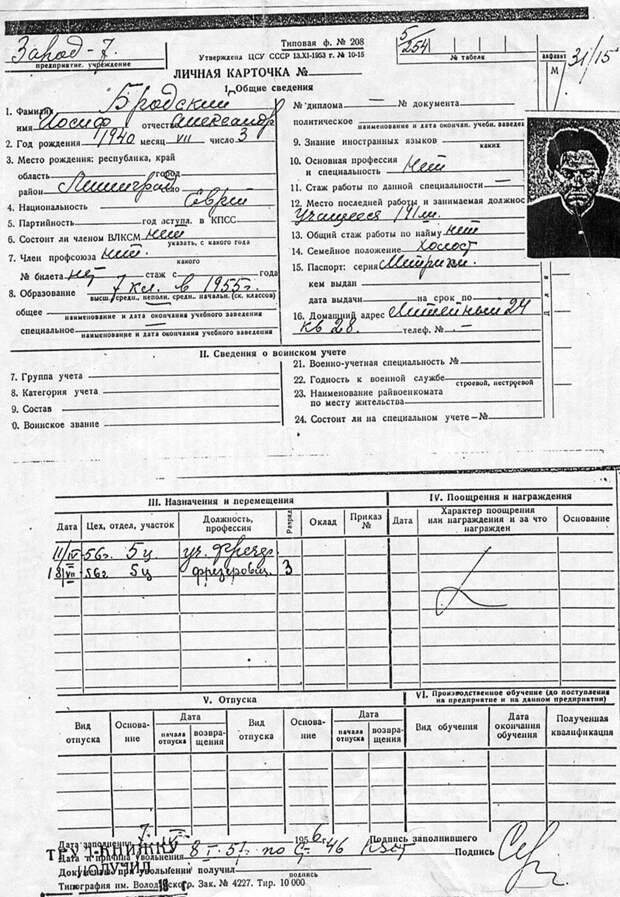 Завод - 7.
предприятие, учреждение
Типовая ф. № 208
Утверждена ЦСУ СССР 13.XI-1953 г. № 10-15
5/254
№ табеля
алфавит
М
31/15
ЛИЧНАЯ КАРТОЧКА №
I. Общие сведения
1. Фамилия Бродский
имя Иосиф отчество Александр
2. Год рождения 1940 месяц VII число 3
3. Место рождения: республика, край
область город
район Ленинград
4. Национальность Еврей
5. Партийность год вступл. в КПСС
6. Состоит ли членом ВЛКСМ нет
указать, с какого года
7. Член профсоюза нет.
какого
№ билета нет стаж с года
8. Образование 7 кл. в 1955 г.
высш., средн., неполн. средн., начальн. (ск. классов)
общее
наименование и дата окончания учебного заведения
специальное
наименование и дата окончания учебного заведения
№ диплома — № документа
политическое
наименование и дата окончан. учебн. заведе
9. Знание иностранных языков
каких
10. Основная профессия
и специальность нет
11. Стаж работы по данной специальности —
12. Место последней работы и занимаемая должнос
Учащегося
13. Общий стаж работы по найму нет
14. Семейное положение Холост
15. Паспорт: серия Метрики.
кем выдан
дата выдачи на срок по
16. Домашний адрес Литейный 24
кв 28. телеф. № . —
II. Сведения о воинском учете
7. Группа учета
8. Категория учета
9. Состав
0. Воинское звание
21. Военно-учетная специальность №
22. Годность к военной службе
строевой, нестроевой
23. Наименование райвоенкомата
по месту жительства
24. Состоит ли на специальном учете — №
III. Назначения и перемещения
IV. Поощрения и награждения
Дата Цех, отдел, участок Должность, профессия Разряд Оклад Приказ № Дата Характер поощрения или награждения и за что награжден Основание
11/IV-56 г. 5 ц уч. фрезер.
18/VII-56 г. 5 ц фрезеровщ. 3
V. Отпуска
VI. Производственное обучение (до поступления на предприятие и на данном предприятии)
Вид отпуска Основание Дата начала отпуска возвращения Вид отпуска Основание Дата начала отпуска возвращения Вид обучения Дата окончания обучения Полученная квалификация
Дата заполнения 7 195 6 г. Подпись заполнившего
Дата и причина увольнения по 46 Подпись
ТРУД. КНИЖКУ
ПОЛУЧИЛ
Документы при увольнении получил
подпись
19 г.
Типография им. Володарского. Зак. № 4227. Тир. 10 000